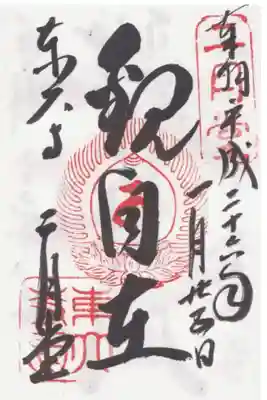 奉拝 平成二十六年
一月廿五日
観自在
東大寺
二月堂